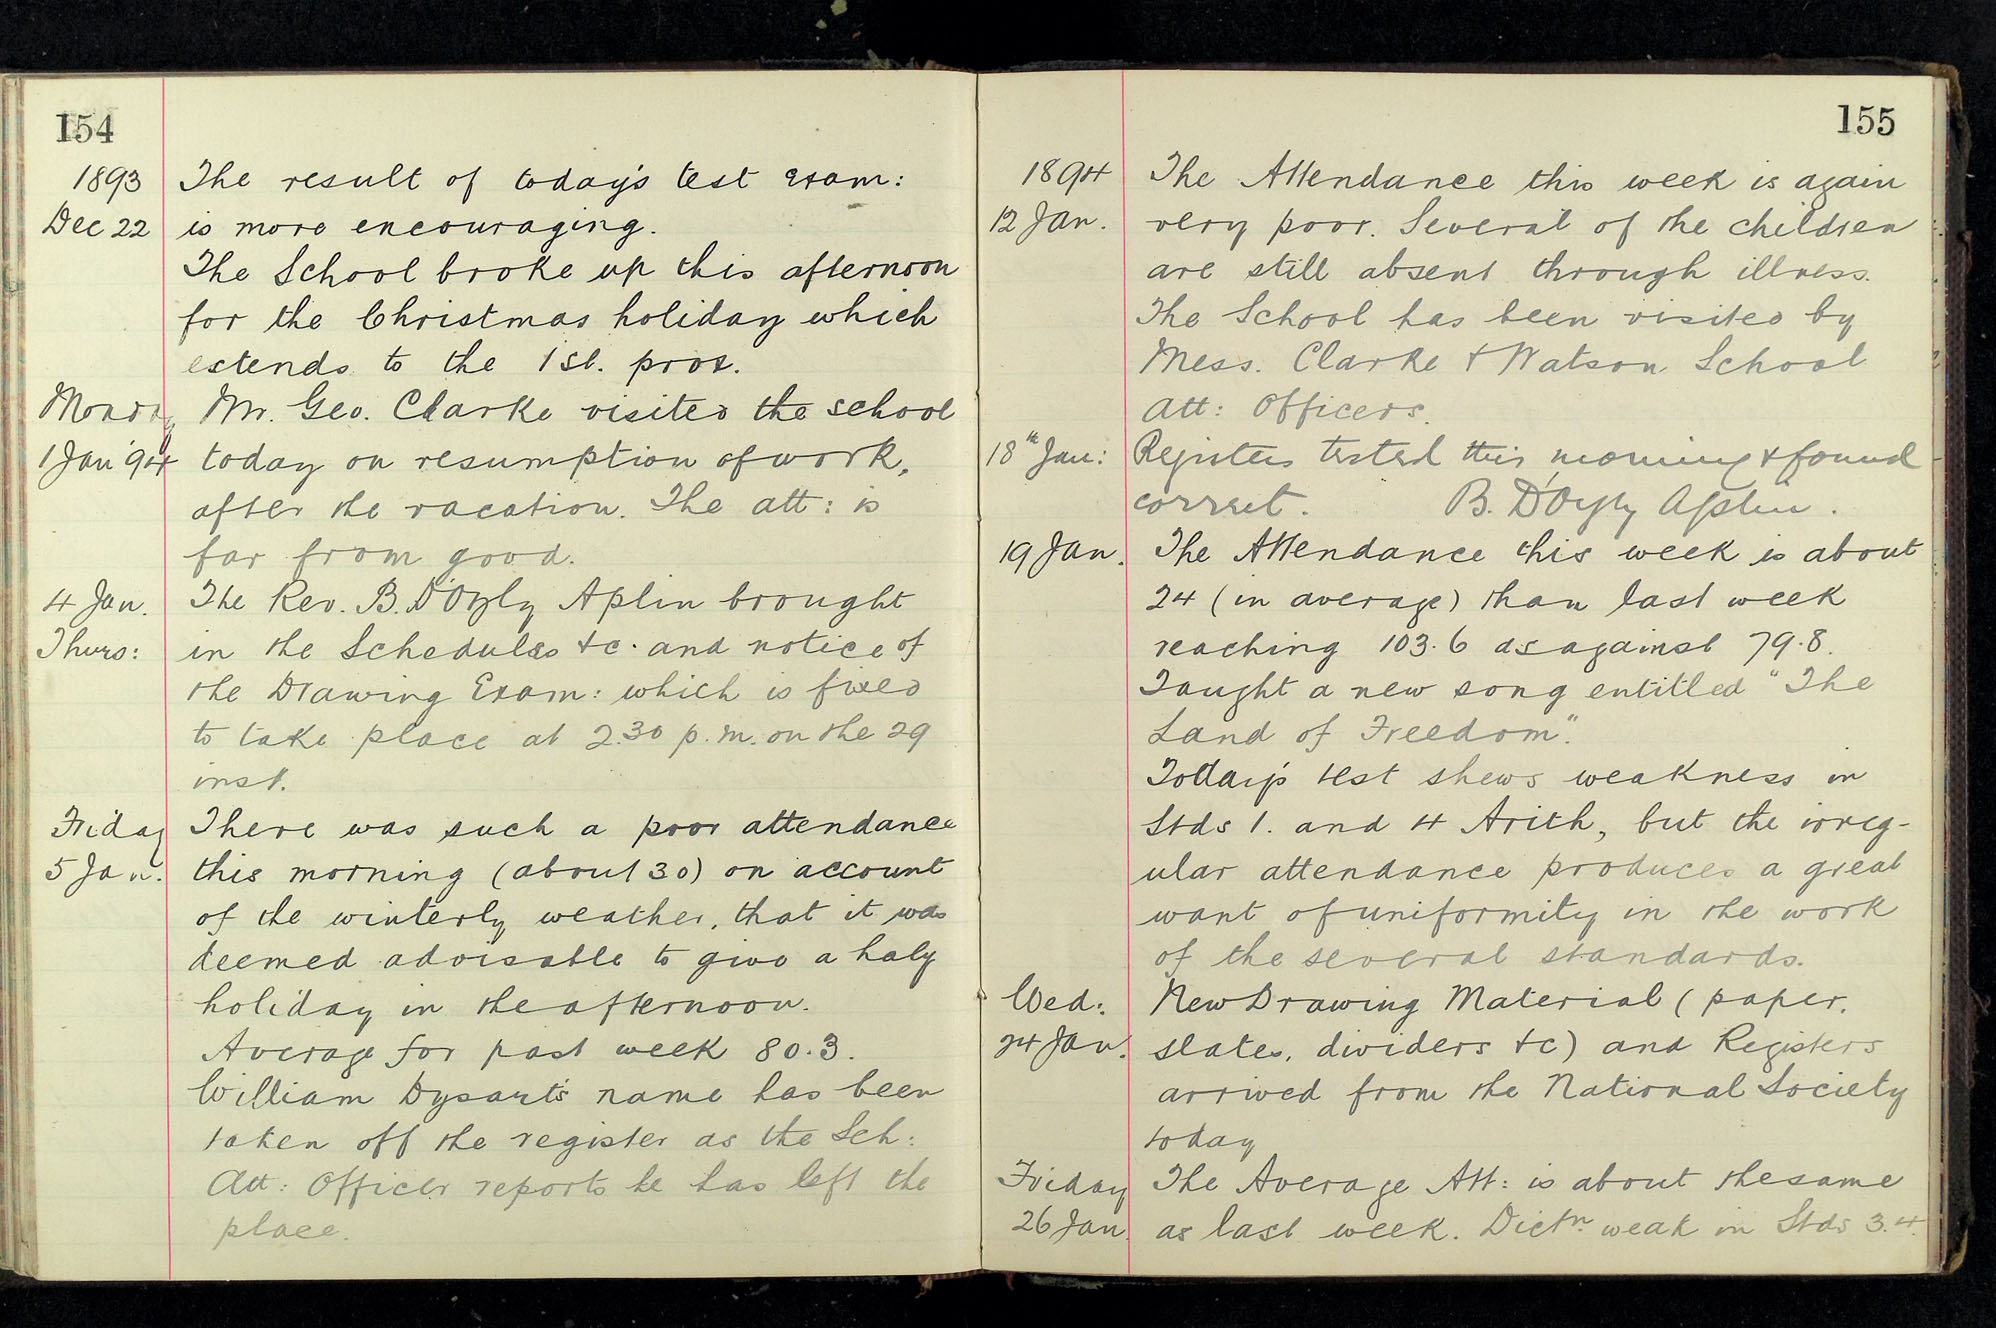 154
1893 The result of today's test Exam:
Dec 22 is more encouraging.
The School broke up this afternoon
for the Christmas holiday which
extends to the 1st. prox.
Monday Mr. Geo. Clarke visited the school
1 Jan '94 today on resumption of work,
after the vacation. The att: is
far from good.
4 Jan. The Rev. B. D'Oyly Aplin brought
Thurs: in the Schedules &c. and notice of
the Drawing Exam: which is fixed
to take place at 2.30 p.m. on the 29
inst.
Friday There was such a poor attendance
5 Jan. this morning (about 30) on account
of the winterly weather, that it was
deemed advisable to give a haly
holiday in the afternoon.
Average for past week 80.3.
William Dysart's name has been
taken off the register as the Sch:
Att: Officer reports he has left the
place.
155
1894 The Attendance this week is again
12 Jan. very poor. Several of the children
are still absent through illness.
The School has been visited by
Mess. Clarke & Watson School
Att: Officers.
18th Jan: Registers tested this morning & found
correct. B. D'Oyly Aplin.
19 Jan. The Attendance this week is about
24 (in average) than last week
reaching 103.6 as against 79.8.
Taught a new song entitled "The
Land of Freedom".
Today's test shews weakness in
Stds 1. and 4 Arith, but the irreg-
ular attendance produces a great
want of uniformity in the work
of the several standards.
Wed: New Drawing Material (paper,
24 Jan. slates, dividers &c) and Registers
arrived from the National Society
today
Friday The Average Att: is about the same
26 Jan as last week. Dictn. weak in Stds 3.4.